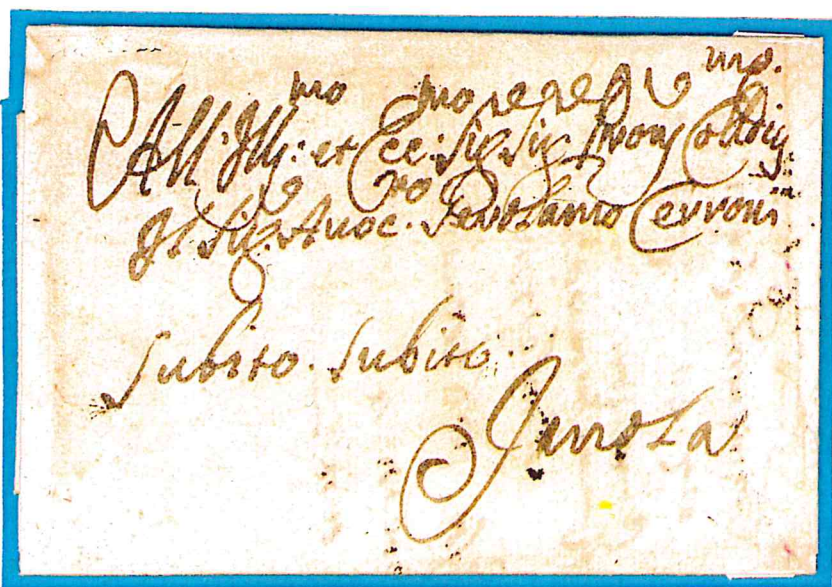 All' Ill:mo et Ecc:mo Sig.re Sig.re Pron Col:mo
Il Sig.r Avoc.to Gerolamo Cerroni
Subito. Subito.
Imola